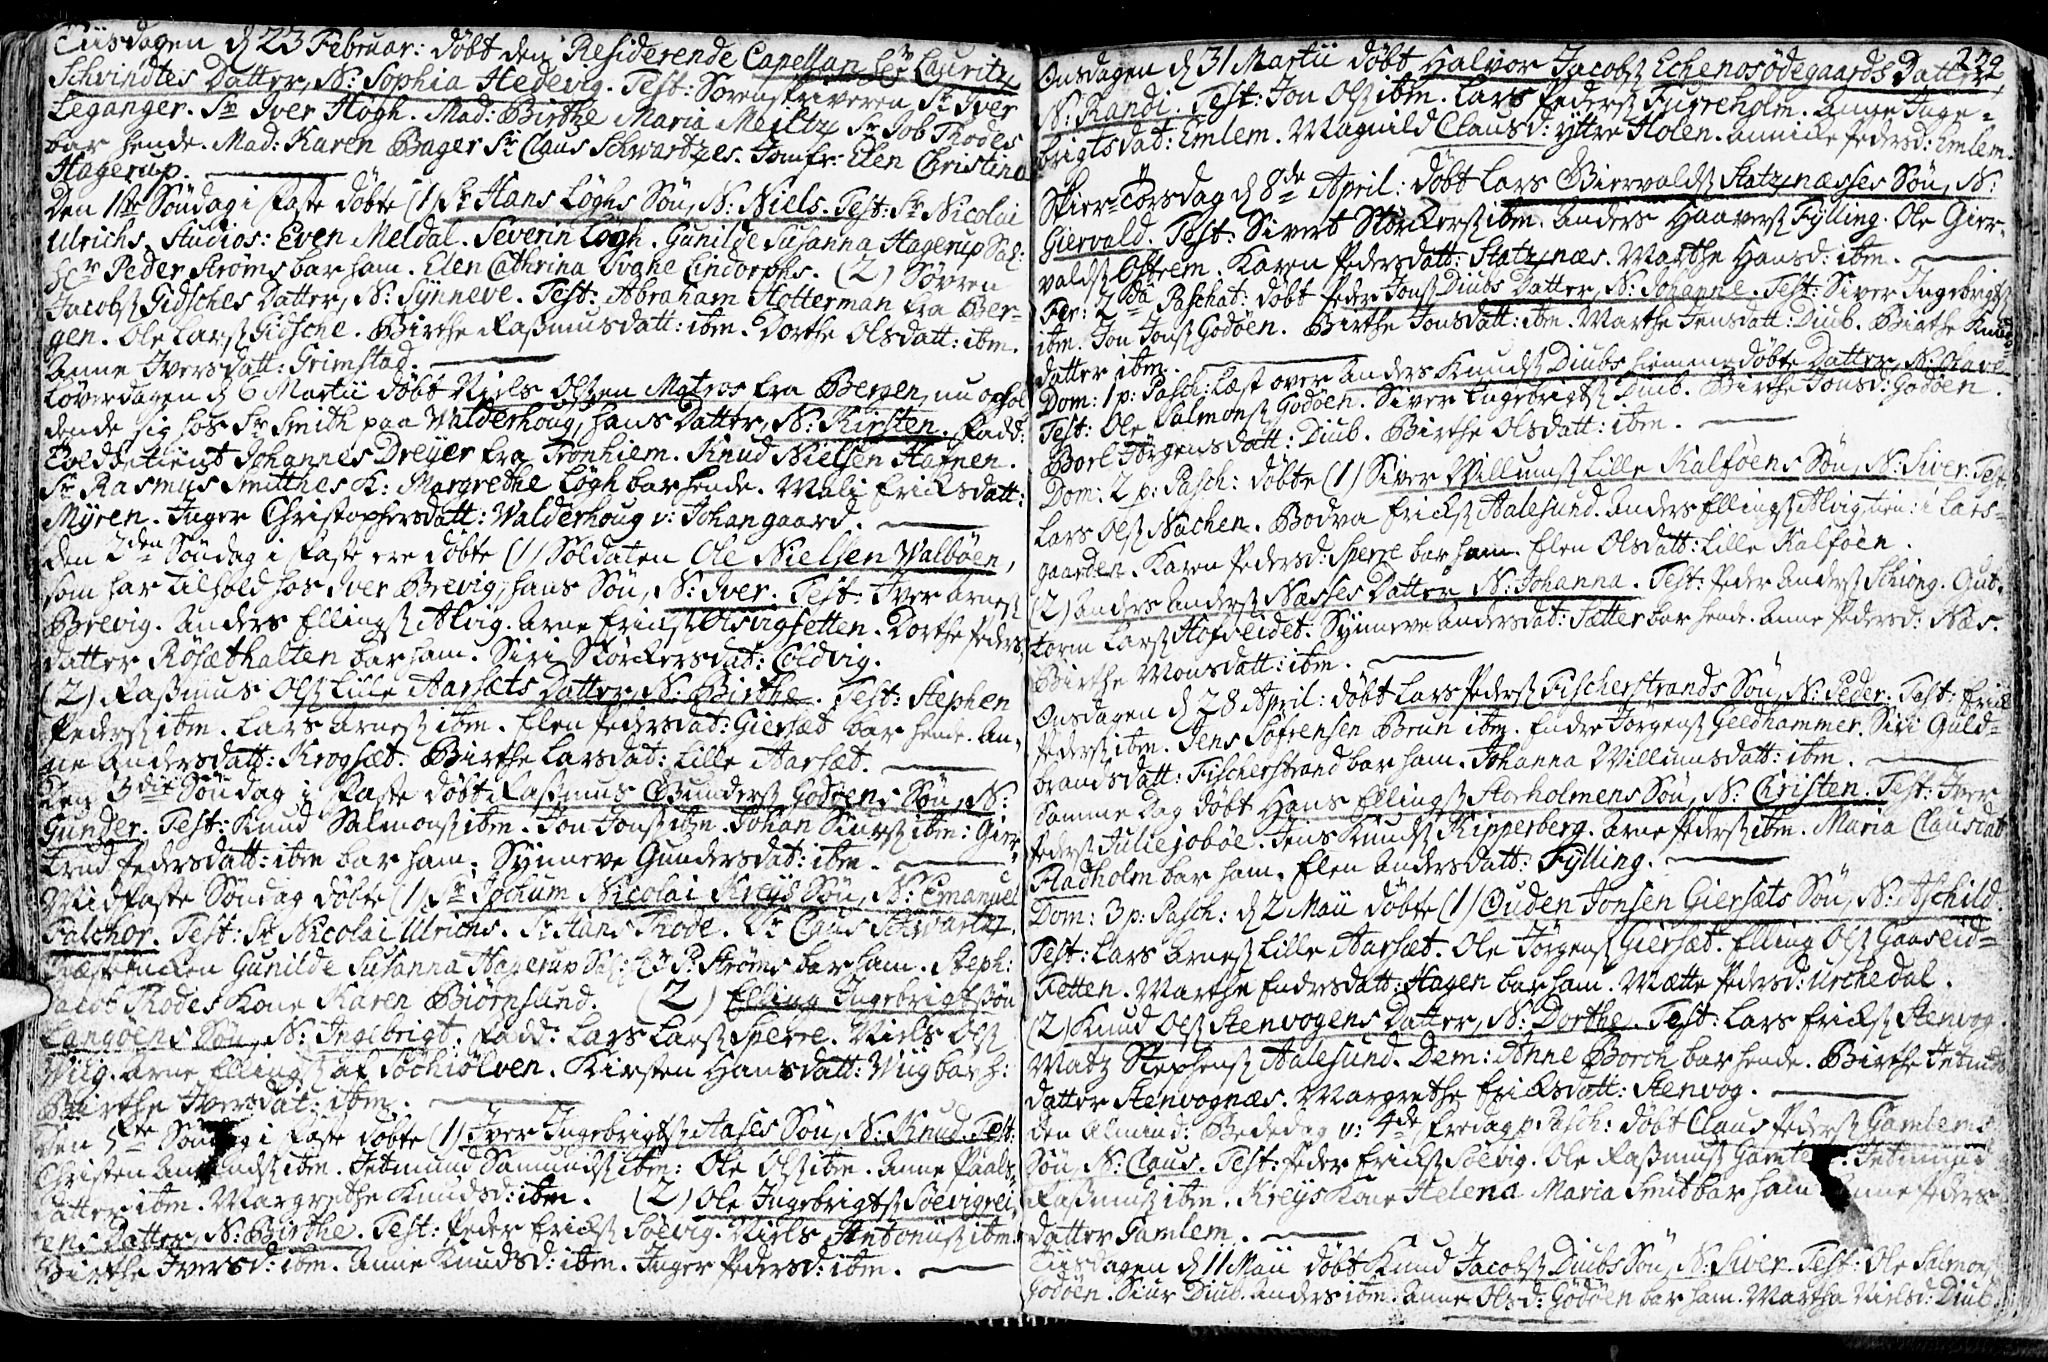 Tiisdagen d 23 Februar: döbt den Residerende Capellan Hr Lauritz
Schvindtes Datter, N: Sophia Hedevig. Test: Sorenskriveren, Sr Iver
Leganger. Sr Iver Högh. Mad: Birthe Maria Meiltz Sr Job Thodes
bar hende. Mad: Karen Bager Sr Claus Schwartzes. Jomfr: Elen Christina
Hagerup.
Den 1ste Söndag i Faste döbte (1) Sr Hans Löghs Sön, N: Niels. Test: Sr Nicolai
Ulrichs. Studios: Even Meldal. Severin Lögh. Gunilde Susanna Hagerup Sal:
Hr Peder Ströms bar ham. Elen Cathrina Svane Lindorphs. (2) Sörren
Jacobs Gidsches Datter, N: Synneve. Test: Abraham Hotterman fra Ber-
gen. Ole Lars Gidsche. Birthe Rasmusdatt: ibm. Dorthe Olsdatt: ibm.
Anne Iversdatt: Grimstad.
Löverdagen d 6 Martii döbt Niels Olsen Matros fra Bergen, nu ophol
dende sig hos Sr Smith paa Walderhoug, hans Datter, N: Kirsten. Fadd:
Toldbetient Johannes Dreyer fra Tronhiem. Knud Nielsen Hafnen.
Sr Rasmus Smitthes K: Margrethe Lögh bar hende. Mali Erichsdatt:
Myren. Inger Christophersdatt: Walderhoug v: Johangaard.
Den 2den Söndag i Faste ere döbte (1) Soldaten Ole Nielsen Walböen,
som har Tilhold hos Iver Brevig, hans Sön, N: Iver. Test: Iver Arnes
Brevig. Anders Ellings Alvig. Arne Erichs Alvigsetten. Dorthe Peders
datter Rösæthalten bar ham. Siri Störckersdat: Coldvig.
(2) Rasmus Ols Lille Aarsæts Datter, N: Birthe. Test: Stephen
Peders ibm. Lars Arnes ibm. Elen Pedersdat: Giersæt bar hende. An-
ne Andersdatt: Krogsæt. Birthe Larsdat: Lille Aarsæt.
Den 3die Söndag i Faste döbt Rasmus Gunders Godöens Sön, N:
Gunder. Test: Knud Salmons ibm. Jon Jons ibm. Johan Siurs ibm: Gier-
trud Pedersdatt: ibm bar ham. Synneve Gundersdat: ibm.
Midfaste Söndag döbte (1) Sr Jochum Nicolai Kreÿds Sön, N: Emanuel
Falchor. Test: Sr Nicolai Ulrichs. Sr Hans Thode. Sr Claus Schwartz.
Gunilde Susanna Hagerup Sal: Hr P: Ströms bar ham. Steph:
Jacob Rodes Kone Karen Biörnsund. (2) Elling Ingebrigtsön
Langöens Sön, N: Ingebrigt. Fadd: Lars Lars Sperre. Niels Ols
Wiig. Arne Ellings af Söchiölven. Kirsten Hansdatt: Wiig bar h:
Birthe Iversdat: ibm.
Den 5te Söndag i Faste döbte (1) Iver Ingebrigts Aases Sön, N: Knud. Test:
Christen ibm. Jetmund Samunds ibm: Ole Ols ibm. Anne Paals-
datter ibm. Margrethe Knudsd: ibm. (2) Ole Ingebrigts Soevigrei-
tens Datter, N: Birthe. Test: Peder Erichs Soevig. Niels Antonius ibm.
Birthe Iversd: ibm. Anne Knudsd: ibm. Inger Pedersd: ibm.
239
Onsdagen d 31 Martii döbt Halvor Jacobs Echenosödegaards Datter,
N: Randi. Test: Jon Ols ibm. Lars Peders Fugreholm. Anne Inge-
brigtsdat: Emlem. Magnild Clausd: yttre Holen. Annike Pedersd: Emlem.
Skier-Torsdag d 8de April: döbt Lars Giervalds Statznæsses Sön, N:
Giervald. Test: Sivert Störckers ibm. Anders Haavers Fylling. Ole Gier-
valds Ostrem. Karen Pedersdatt: Statznæs. Marthe Hansd: ibm.
Fer: 2da Paschat: döbt Peder Jons Diubs Datter, N: Johanne. Test: Siver Ingebrigts
ibm. Jon Jons Godöen. Birthe Jonsdatt: ibm. Marthe Jensdatt: Diub. Birthe Knuds-
datter ibm.
Dom: 1 p: Pasch: læst over Anders Knuds Diubs hiemmedöbte Datter, N: Olave.
Test: Ole Salmons Godöen. Siver Ingebrigts Diub. Birthe Jonsd: Godöen.
Borl Jörgensdatt: Diub. Birthe Olsdatt: ibm.
Dom: 2 p: Pasch: döbte (1) Siver Willums Lille Kalföens Sön, N: Siver. Test:
Lars Ols Nächen. Bodva Erichs Aalesund. Anders Ellings Alvig, tien: i Lars-
gaarden. Karen Pedersd: Sperre bar ham. Elen Olsdatt: Lille Kalföen.
(2) Anders Anders Næsses Datter N: Johanna. Test: Peder Anders Schiong. Gut-
torm Lars Hofseidet. Synneve Andersdat: Sætter bar hende. Anne Pedersd: Næs.
Birthe Monsdatt: ibm.
Onsdagen d 28 April: döbt Lars Peders Fischerstrands Sön, N: Peder. Test: Erich
Peders ibm. Jens Söfrensen Brun ibm. Endre Jörgens Geedhammer. Siri Guld-
brandsdatt: Fischerstrand bar ham. Johanna Willumsdatt: ibm.
Samme Dag döbt Hans Ellings Storholmens Sön, N: Christen. Test: Iver
Peders Juliejoböe. Jens Knuds Kipperberg. Arne Peders ibm. Maria Clausdat
Fladholm bar ham. Elen Andersdatt: Fylling.
Dom: 3 p: Pasch: d 2 Maii döbte (1) Ouden Jonsen Giersæts Sön, N: Aschild.
Test: Lars Arnes Lille Aarsæt. Ole Jörgens Giersæt. Elling Ols Gaaseid-
Tetten. Marthe Endresdatt: Hagen bar ham. Mætte Pedersd: Urchedal.
(2) Knud Ols Stenvogens Datter, N: Dorthe. Test: Lars Erichs Stenvog.
Matz Stephens Aalesund. Dem: Anne Borch bar hende. Birthe Jetmunds
datter Stenvognæs. Margrethe Erichsdatt: Stenvog.
Den Almind: Bededag v: 4de Fredag p: Pasch: döbt Claus Peders Gamlems
Sön, N: Claus. Test: Peder Erichs Soevig. Ole Rasmus Jetmund
Rasmus ibm. Kreÿs Kone Helena Maria Smit bar ham. Anne Peders
datter Gamlem.
Tiisdagen d 11 Maii döbt Knud Jacobs Diubs Sön, N: Siver. Test: Ole Salmons
Godöen. Siur Diub. Anders ibm. Anne Olsd: Godöen bar ham. Martha Nielsd: Diub.